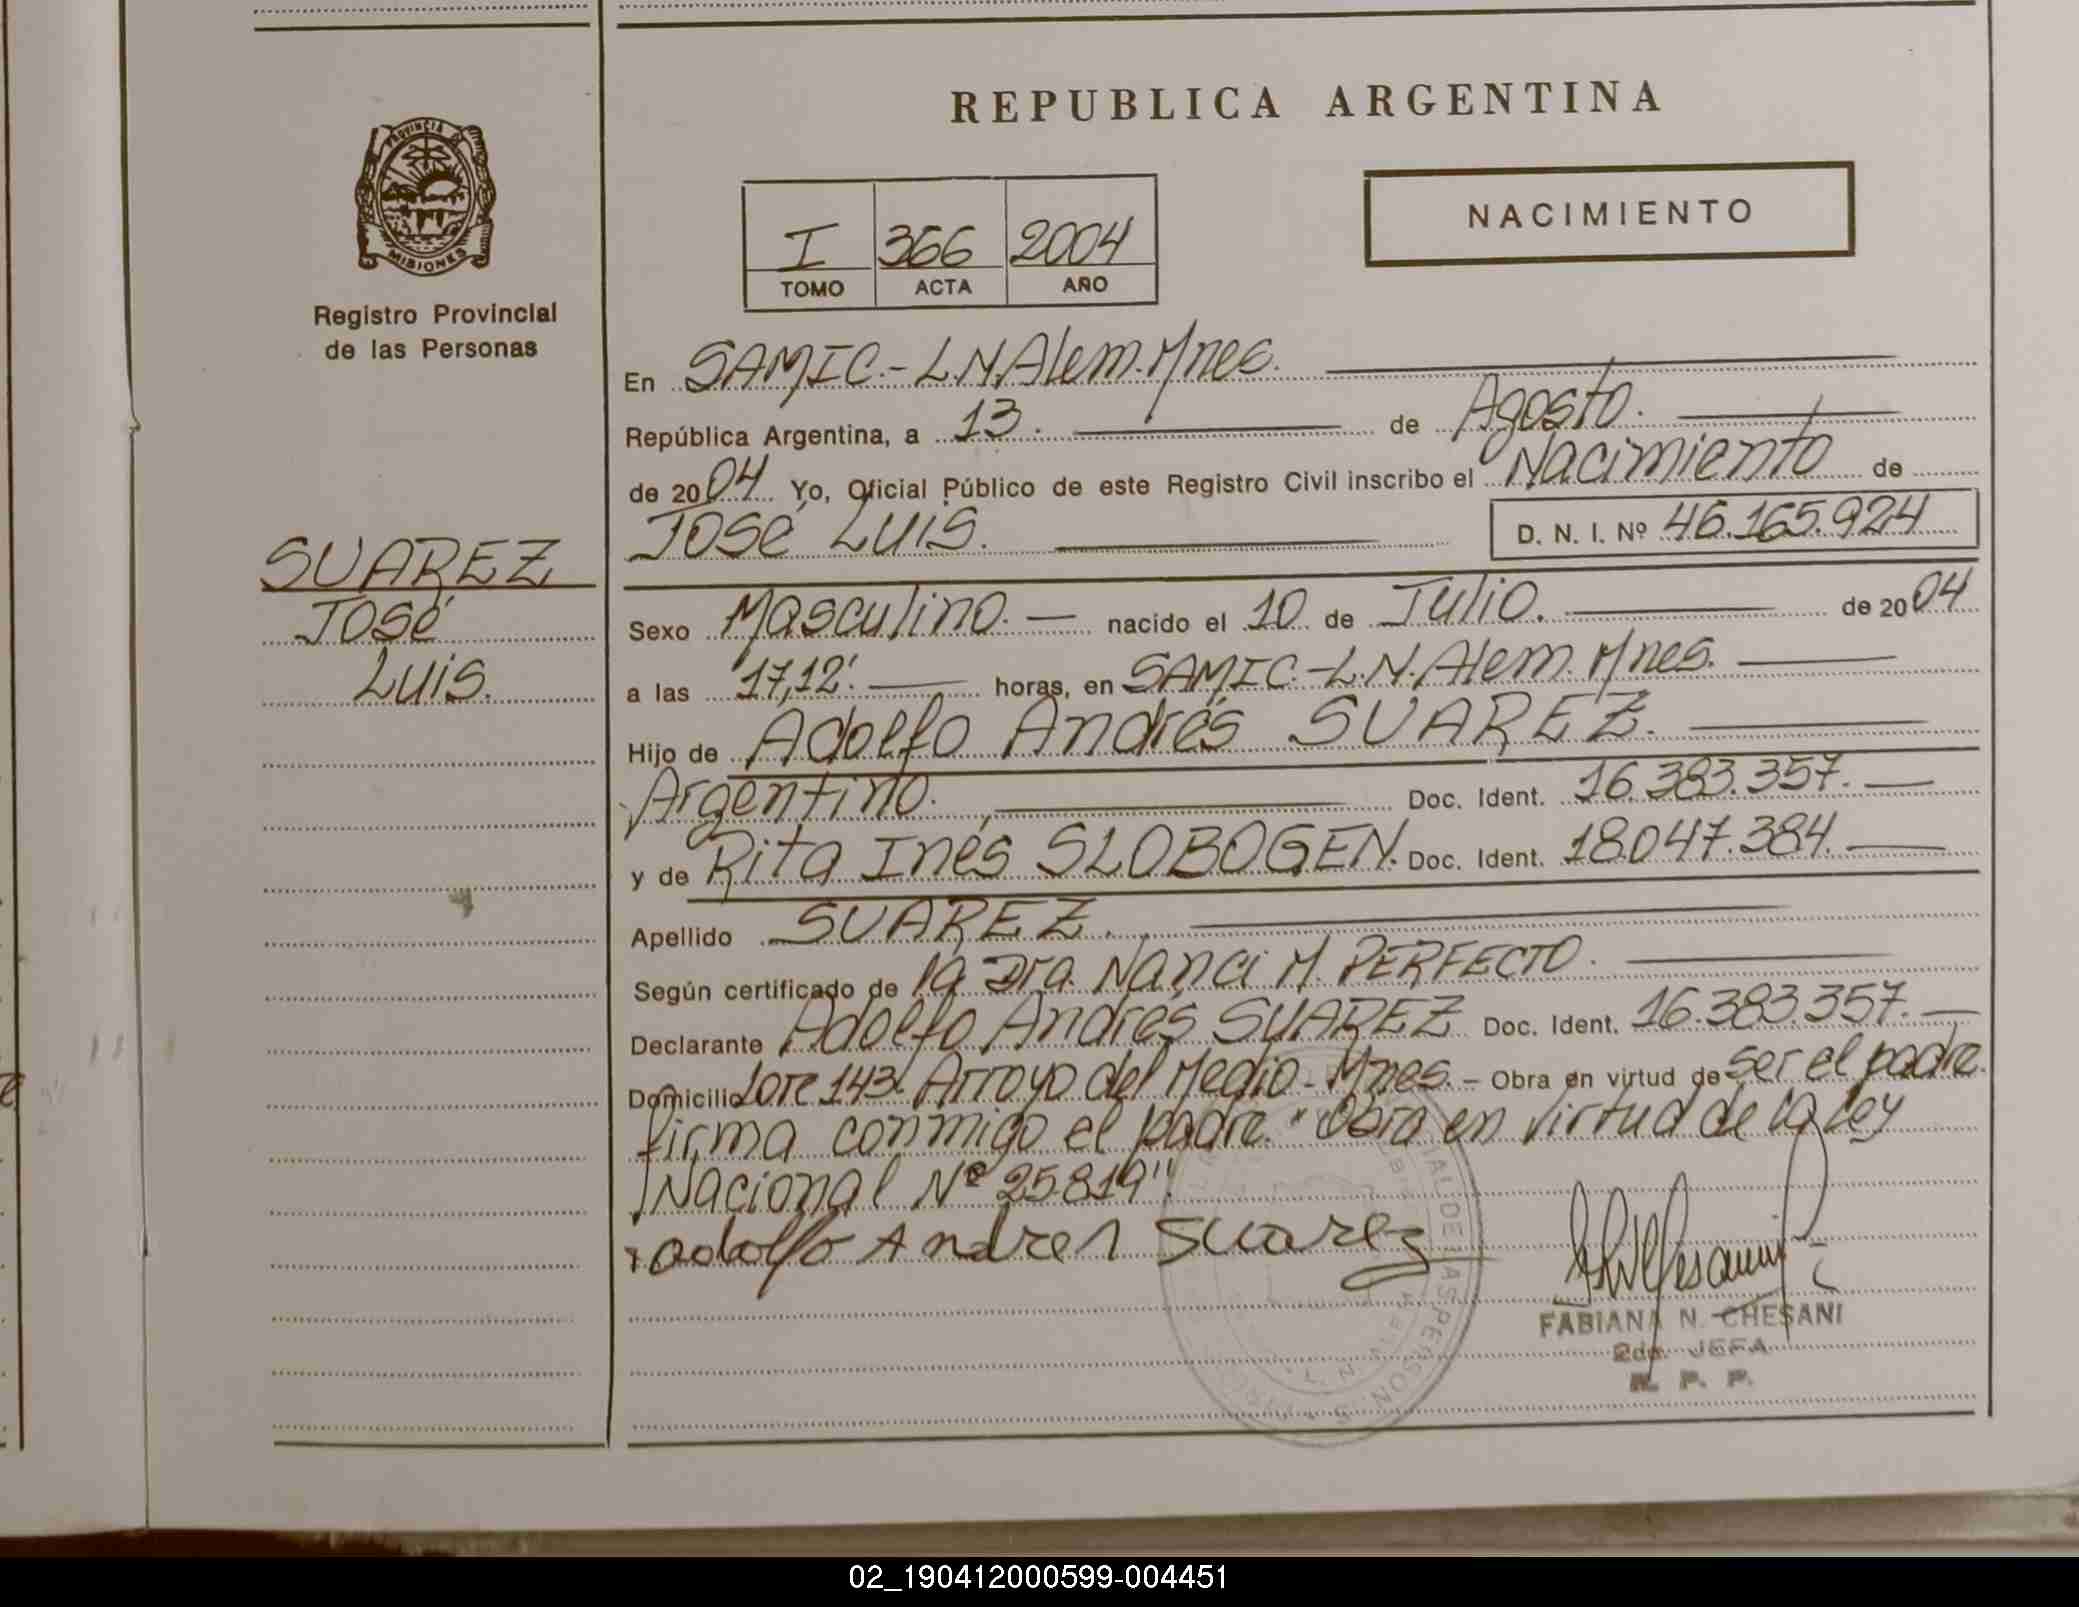 REPUBLICA ARGENTINA
PROVINCIA D
MISIONES
Registro Provincial
de las Personas
NACIMIENTO
I 366 2004
TOMO ACTA AÑO
En SAMIC.- L.N.Alem.Mnes.
República Argentina, a 13. de Agosto.
de 2004 Yo, Oficial Público de este Registro Civil inscribo el Nacimiento de
José Luis. D. N. I. Nº 46.165.924
SUAREZ
José
Luis.
Sexo Masculino. nacido el 10 de Julio. de 2004
a las 17,12'. horas, en SAMIC.-L.N.Alem.Mnes.
Hijo de Adolfo Andrés SUAREZ.
Argentino. Doc. Ident. 16.383.357.
y de Rita Inés SLOBOGEN. Doc. Ident. 18.047.384.
Apellido SUAREZ.
Según certificado de la Dra. Nanci M. PERFECTO.
Declarante Adolfo Andrés SUAREZ Doc. Ident. 16.383.357.
Domicilio Lote 143. Arroyo del Medio-Mnes.- Obra en virtud de ser el padre.
firma conmigo el padre. "Obra en virtud de la Ley
Nacional Nº 25.819".
Adolfo Andres Suarez
FABIANA N. CHESANI
2da. JEFA
R. P. P.
02_190412000599-004451